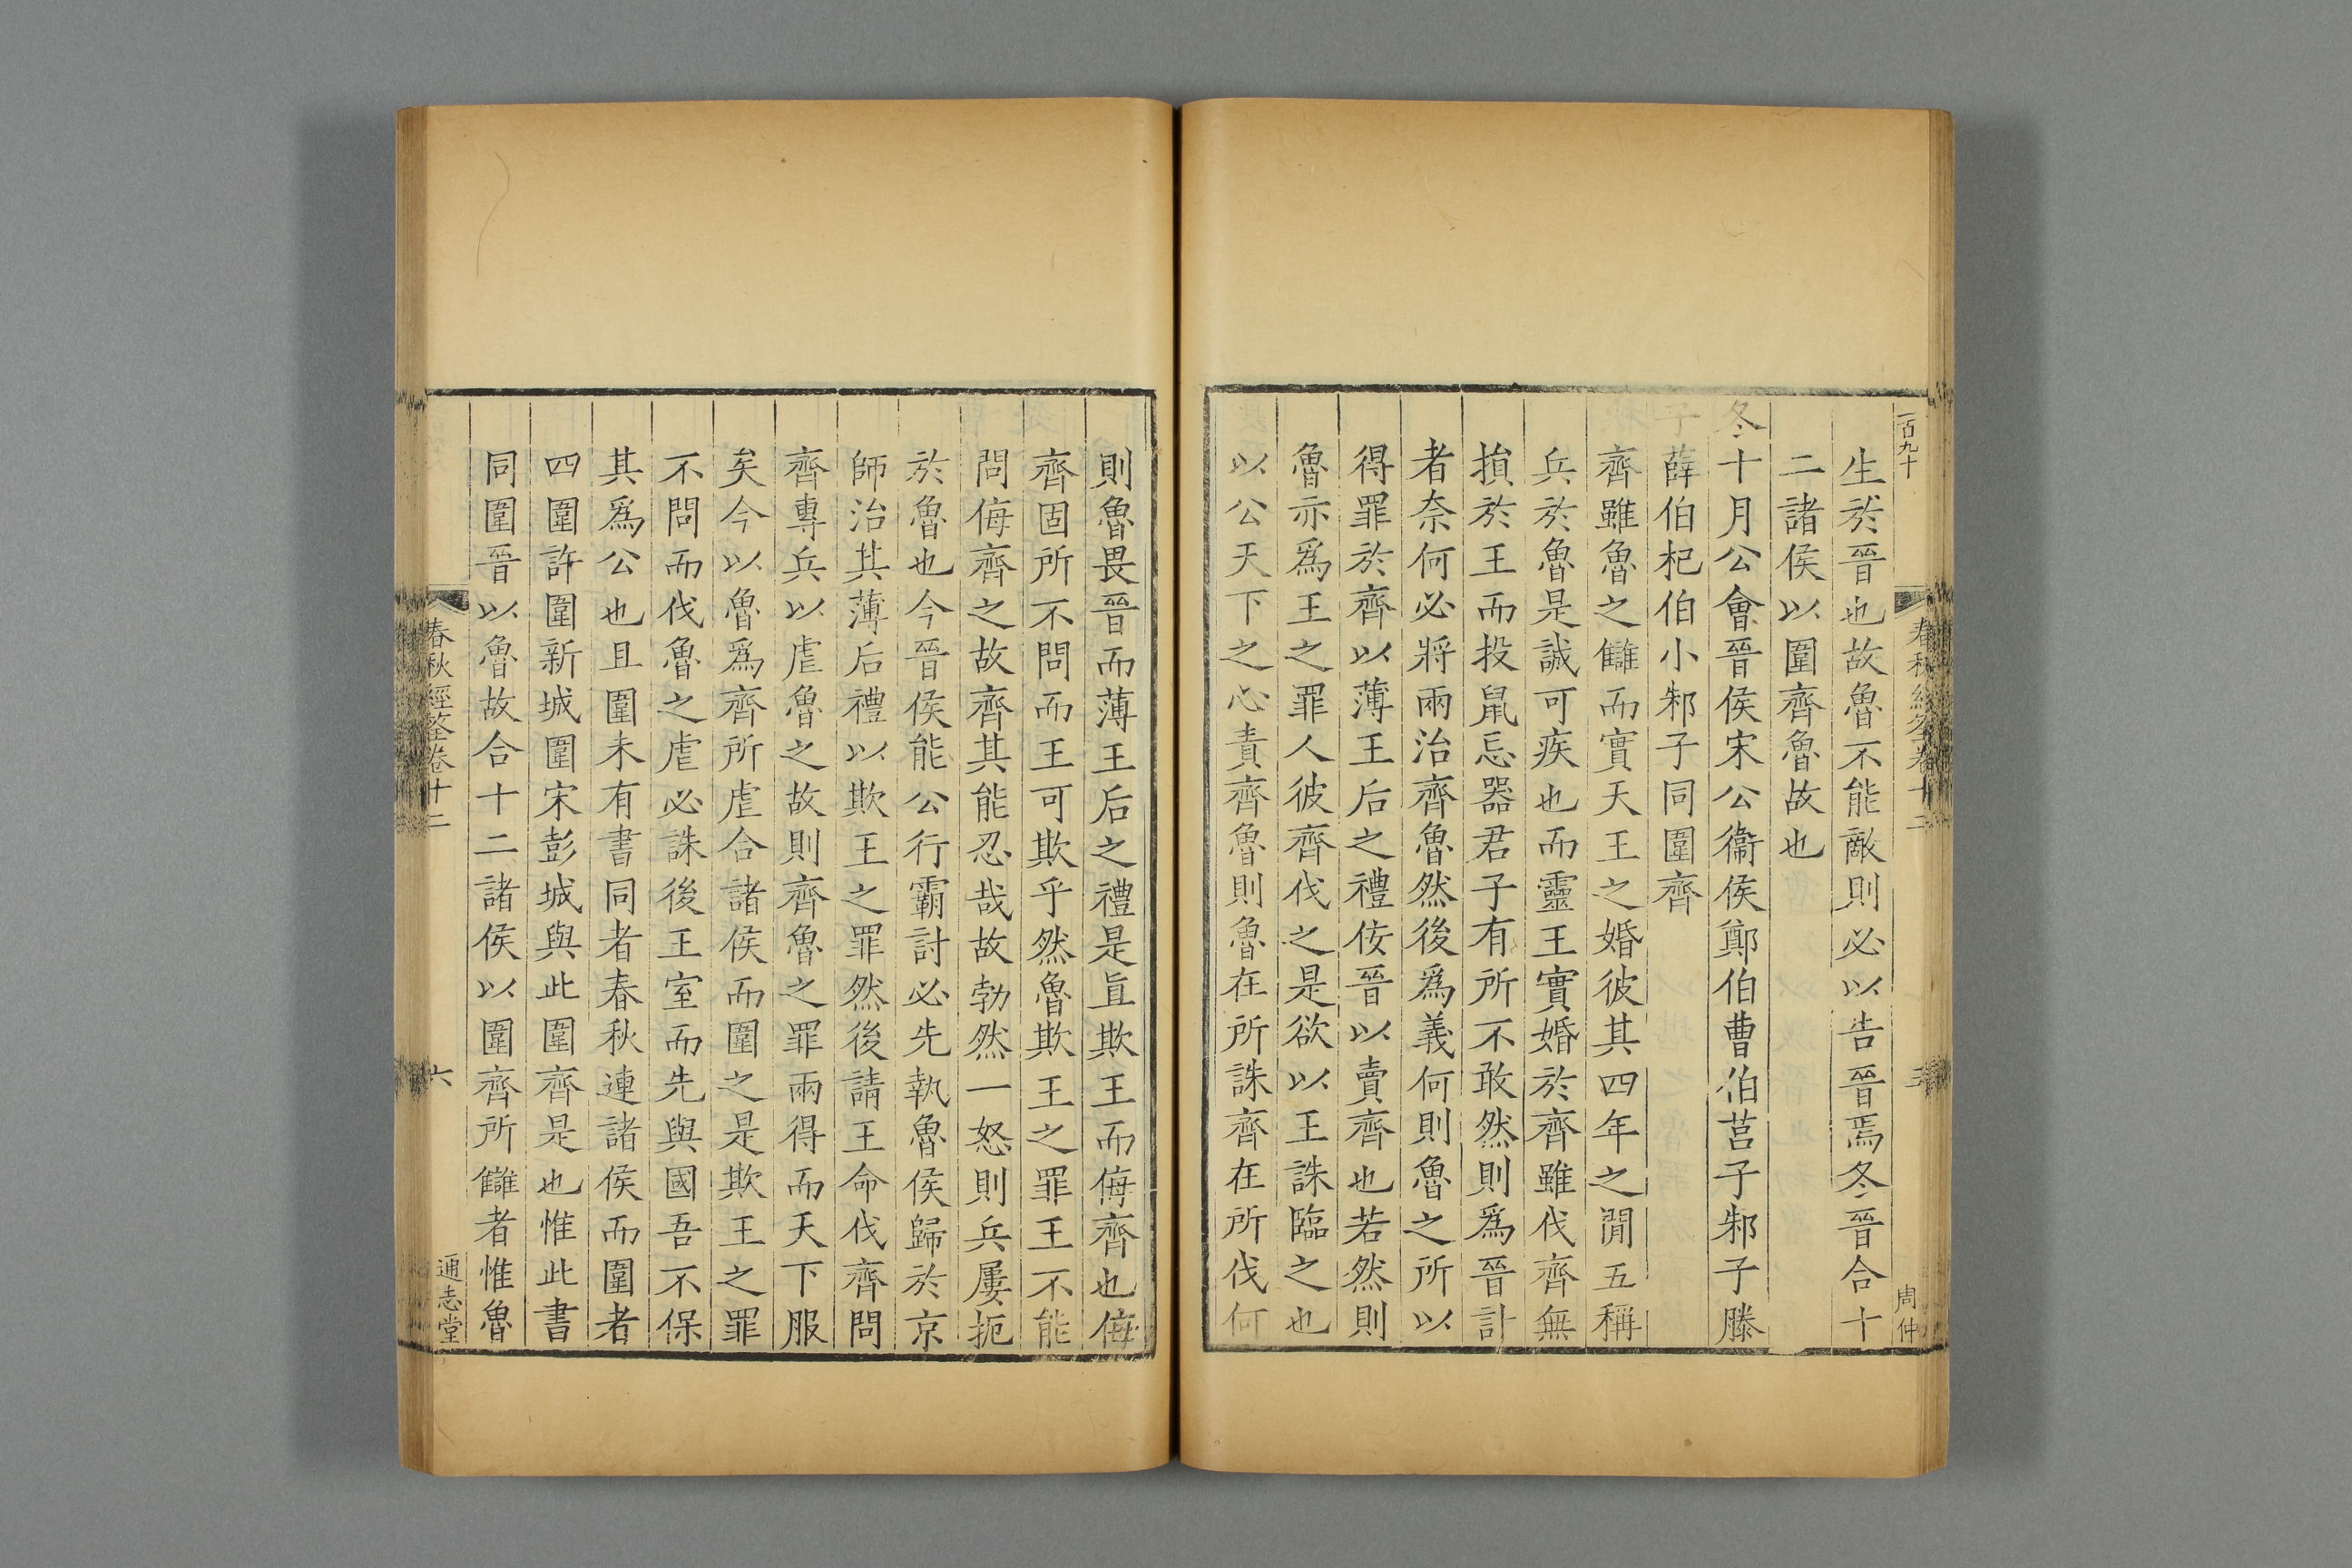 一百九十
周仲
生於晉也故魯不能敵則必以告晉焉冬晉合十
二諸侯以圍齊魯故也
冬十月公會晉侯宋公衞侯鄭伯曹伯莒子邾子滕
子薛伯杞伯小邾子同圍齊
齊雖魯之讎而實天王之婚彼其四年之閒五稱
兵於魯是誠可疾也而靈王實婚於齊雖伐齊無
損於王而投鼠忌器君子有所不敢然則爲晉計
者奈何必將兩治齊魯然後爲義何則魯之所以
得罪於齊以薄王后之禮佞晉以賣齊也若然則
魯亦爲王之罪人彼齊伐之是欲以王誅臨之也
以公天下之心責齊魯則魯在所誅齊在所伐何
則魯畏晉而薄王后之禮是直欺王而侮齊也侮
齊固所不問而王可欺乎然魯欺王之罪王不能
問侮齊之故齊其能忍哉故勃然一怒則兵屢扼
於魯也今晉侯能公行霸討必先執魯侯歸於京
師治其薄后禮以欺王之罪然後請王命伐齊問
齊專兵以虐魯之故則齊魯之罪兩得而天下服
矣今以魯爲齊所虐合諸侯而圍之是欺王之罪
不問而伐魯之虐必誅後王室而先與國吾不保
其爲公也且圍未有書同者春秋連諸侯而圍者
四圍許圍新城圍宋彭城與此圍齊是也惟此書
同圍晉以魯故合十二諸侯以圍齊所讎者惟魯
春秋經筌卷十二
六
通志堂